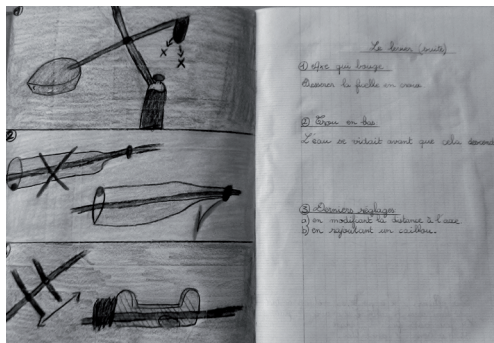 Le levier (suite)
① Axe qui bouge
Serrer la ficelle en croix
② Trou en bas
L'eau se vidait avant que cela descend
③ Derniers réglages
a) en modifiant la distance à l'axe
b) en rajoutant un caillou.
②